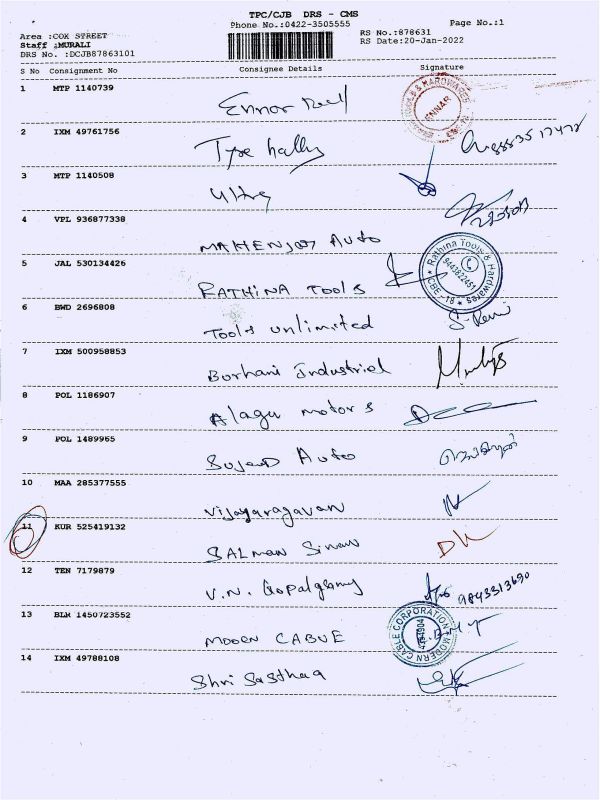 TPC/CJB DRS - CMS
Phone No.:0422-3505555
Page No.:1
Area :COX STREET
Staff :MURALI
DRS No. :DCJB87863101
RS No.:878631
RS Date:20-Jan-2022
S No Consignment No Consignee Details Signature
1 MTP 1140739
Ennar
ENNAR
2 IXM 49761756
3 MTP 1140508
Ultra
4 VPL 936877338
Auto
5 JAL 530134426
RATHINA TOOLS
Rathina Tools & Hardwares
9443822451
CBE - 18
6 BWD 2696808
Tools unlimited S. Ravi
7 IXM 500958853
Burhani Industrial
8 POL 1186907
Alagu motors
9 POL 1489965
Auto
10 MAA 285377555
Vijayaragavan
11 KUR 525419132
SALMAN
12 TEN 7179879
V.N. Gopalsamy 9843313690
13 BLR 1450723552
MODERN CABLE CORPORATION
14 IXM 49788108
Shri Sasthaa